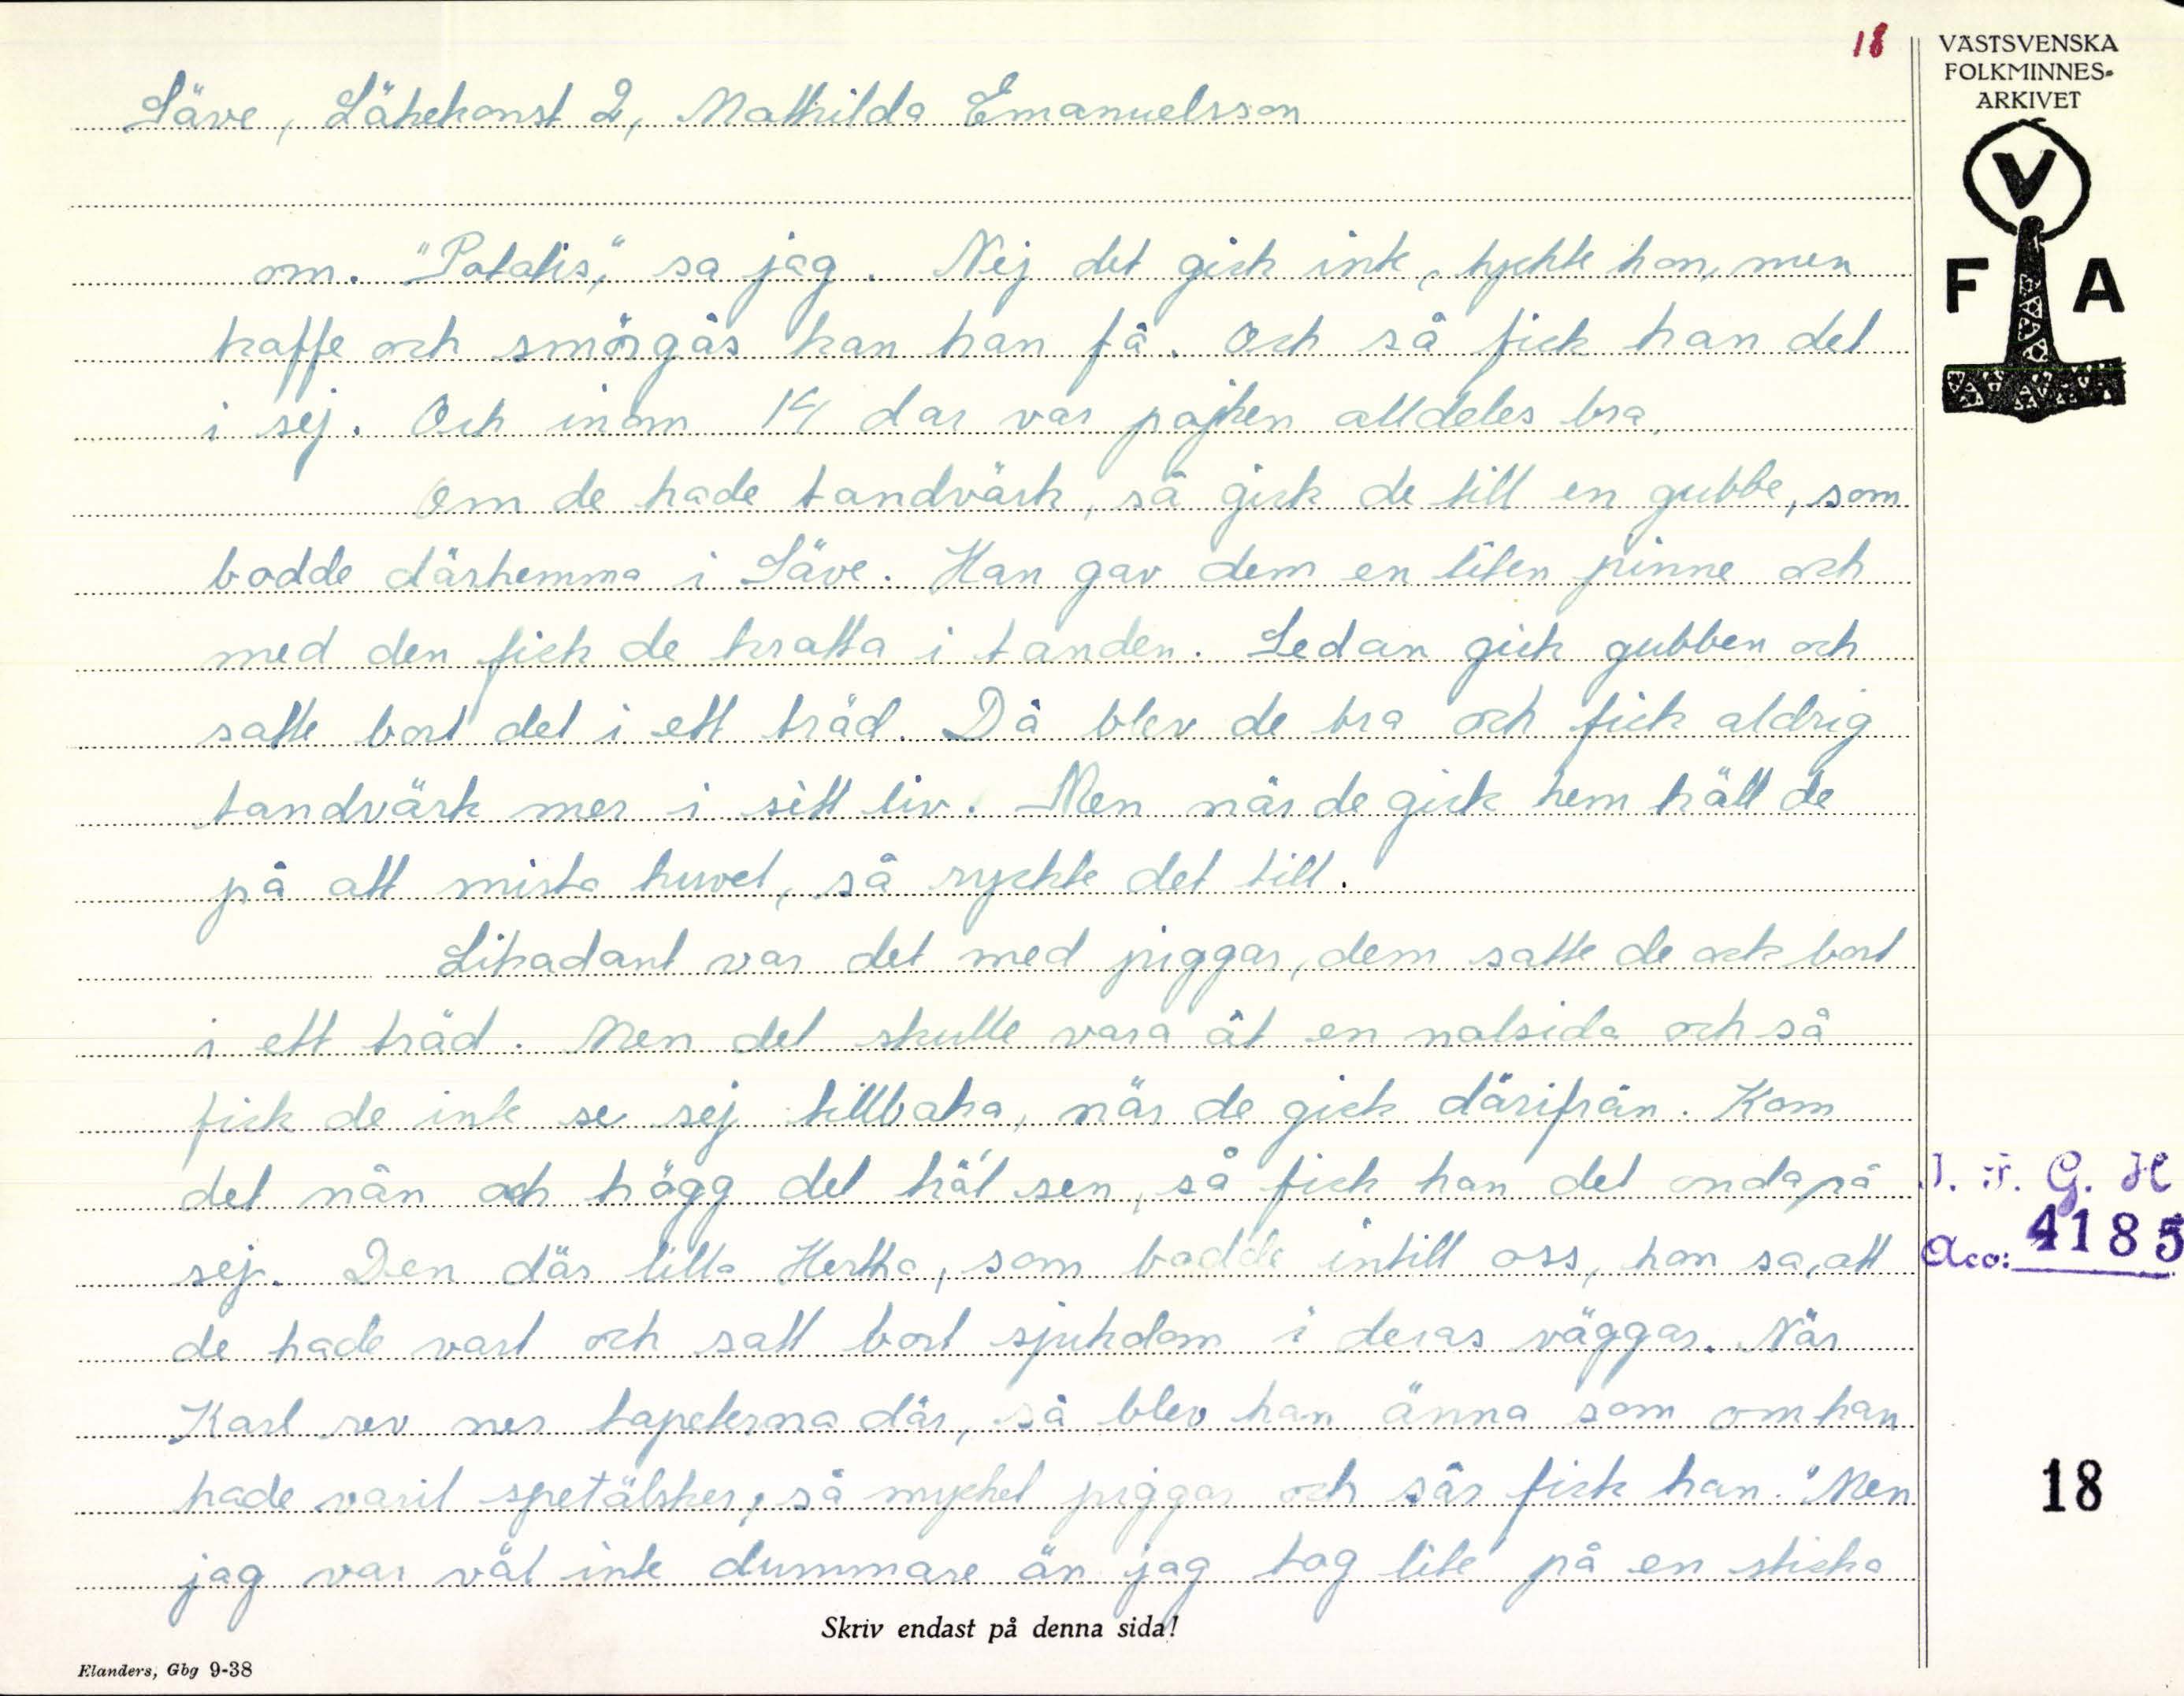 18
VÄSTSVENSKA
FOLKMINNES-
ARKIVET
V
F A
Säve, Läkekonst 2, Mathilda Emanuelsson
om. "Potatis," sa jag. Nej det gick inte, tyckte hon, men
kaffe och smörgås kan han få. Och så fick han det
i sej. Och inom 14 dar var pojken alldeles bra.
Om de hade tandvärk, så gick de till en gubbe, som
bodde därhemma i Säve. Han gav dem en liten pinne och
med den fick de kratta i tanden. Sedan gick gubben och
satte bort det i ett träd. Då blev de bra och fick aldrig
tandvärk mer i sitt liv. Men när de gick hem häll de
på att mista huvet, så ryckte det till.
Likadant var det med piggar, dem satte de ock bort
i ett träd. Men det skulle vara åt en nolsida och så
fick de inte se sej tillbaka, när de gick därifrån. Kom
det nån och högg det trät sen, så fick han det onda på
sej. Den där lilla Hertha, som bodde intill oss, hon sa, att
de hade vart och satt bort sjukdom i deras väggar. När
Karl rev ner tapeterna där, så blev han änna som om han
hade varit spetälsker, så mycket piggar och sår fick han. "Men
jag var väl inte dummare än jag tog lite på en sticka
I. F. G. H
Acc: 4185
18
Skriv endast på denna sida!
Elanders, Gbg 9-38